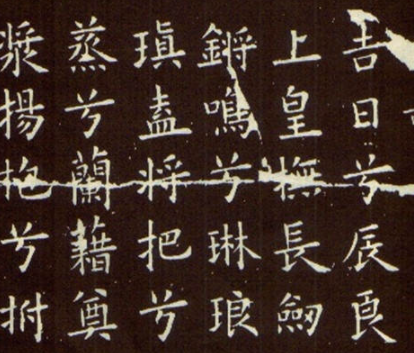 吉日兮辰良
上皇撫長劒
鏘鳴兮琳琅
瑱盍將把兮
蒸兮蘭藉奠
漿揚枹兮拊